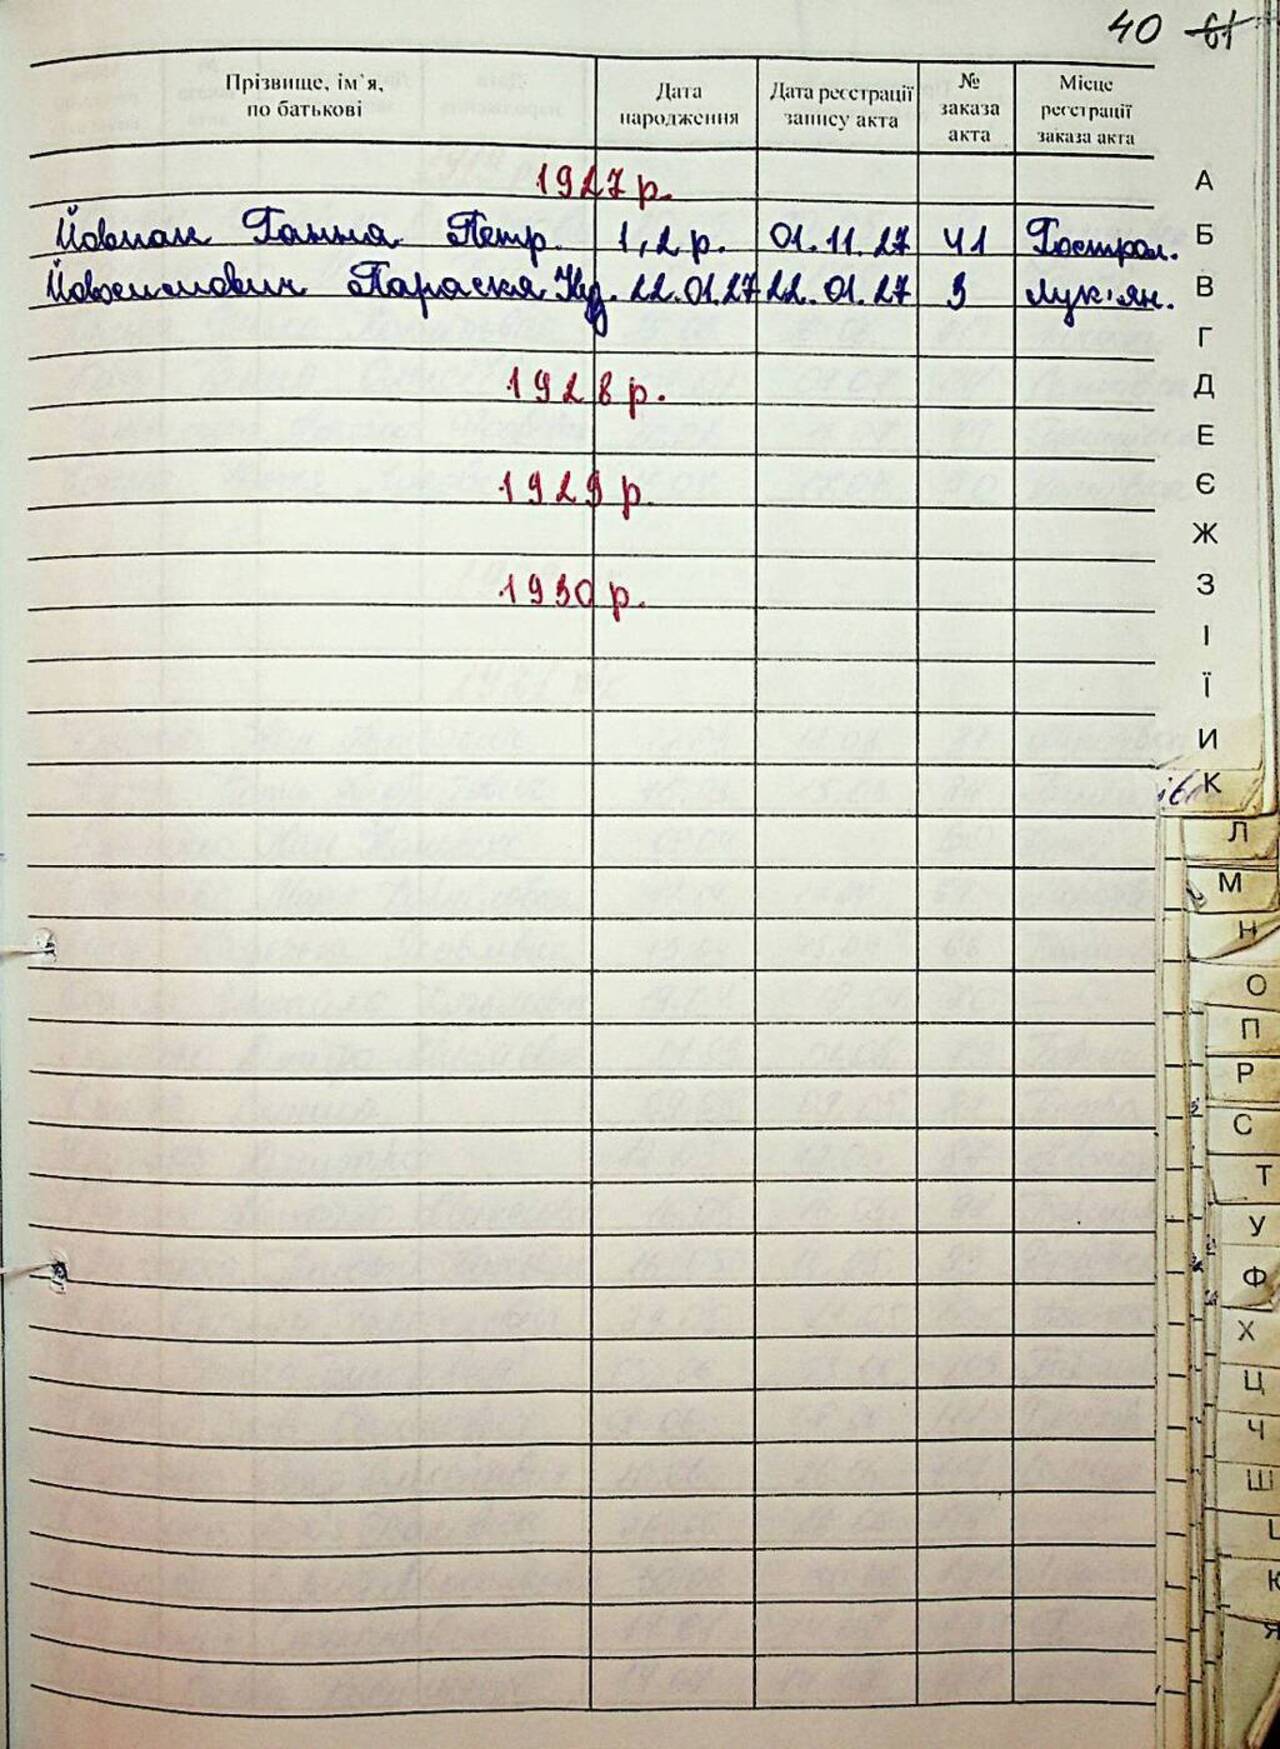 40 61
Прізвище, ім'я, по батькові
Дата народження
Дата реєстрації запису акта
№ заказа акта
Місце реєстрації заказа акта
1927 р.
Ганна Петр. 1,2 р. 01.11.27 41 Гострол.
Параскя 22.01.27 22.01.27 3 Лук'ян.
1928 р.
1929 р.
1930 р.
А
Б
В
Г
Д
Е
Є
Ж
З
І
Ї
И
К
Л
М
Н
О
П
Р
С
Т
У
Ф
Х
Ц
Ч
Ш
Ю
Я